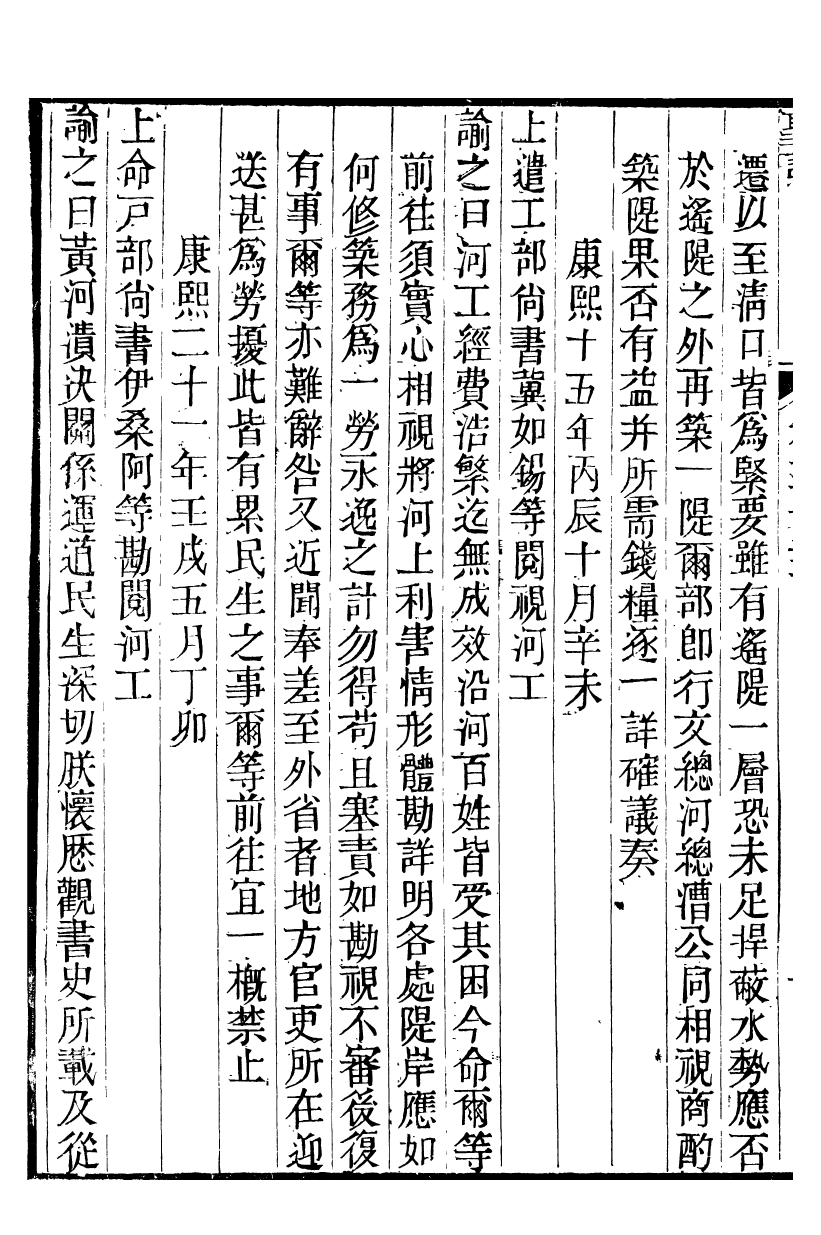 遷以至淸口皆爲緊要雖有遙隄一層恐未足捍蔽水勢應否
於遙隄之外再築一隄爾部卽行文總河總漕公同相視商酌
築隄果否有益并所需錢糧逐一詳確議奏
康熙十五年丙辰十月辛未
上遣工部尙書冀如錫等閱視河工
諭之曰河工經費浩繁迄無成效沿河百姓皆受其困今命爾等
前往須實心相視將河上利害情形體勘詳明各處隄岸應如
何修築務爲一勞永逸之計勿得苟且塞責如勘視不審後復
有事爾等亦難辭咎又近聞奉差至外省者地方官吏所在迎
送甚爲勞擾此皆有累民生之事爾等前往宜一槪禁止
康熙二十一年壬戌五月丁卯
上命戸部尙書伊桑阿等勘閱河工
諭之曰黃河潰決關係運道民生深切朕懷歷觀書史所載及從